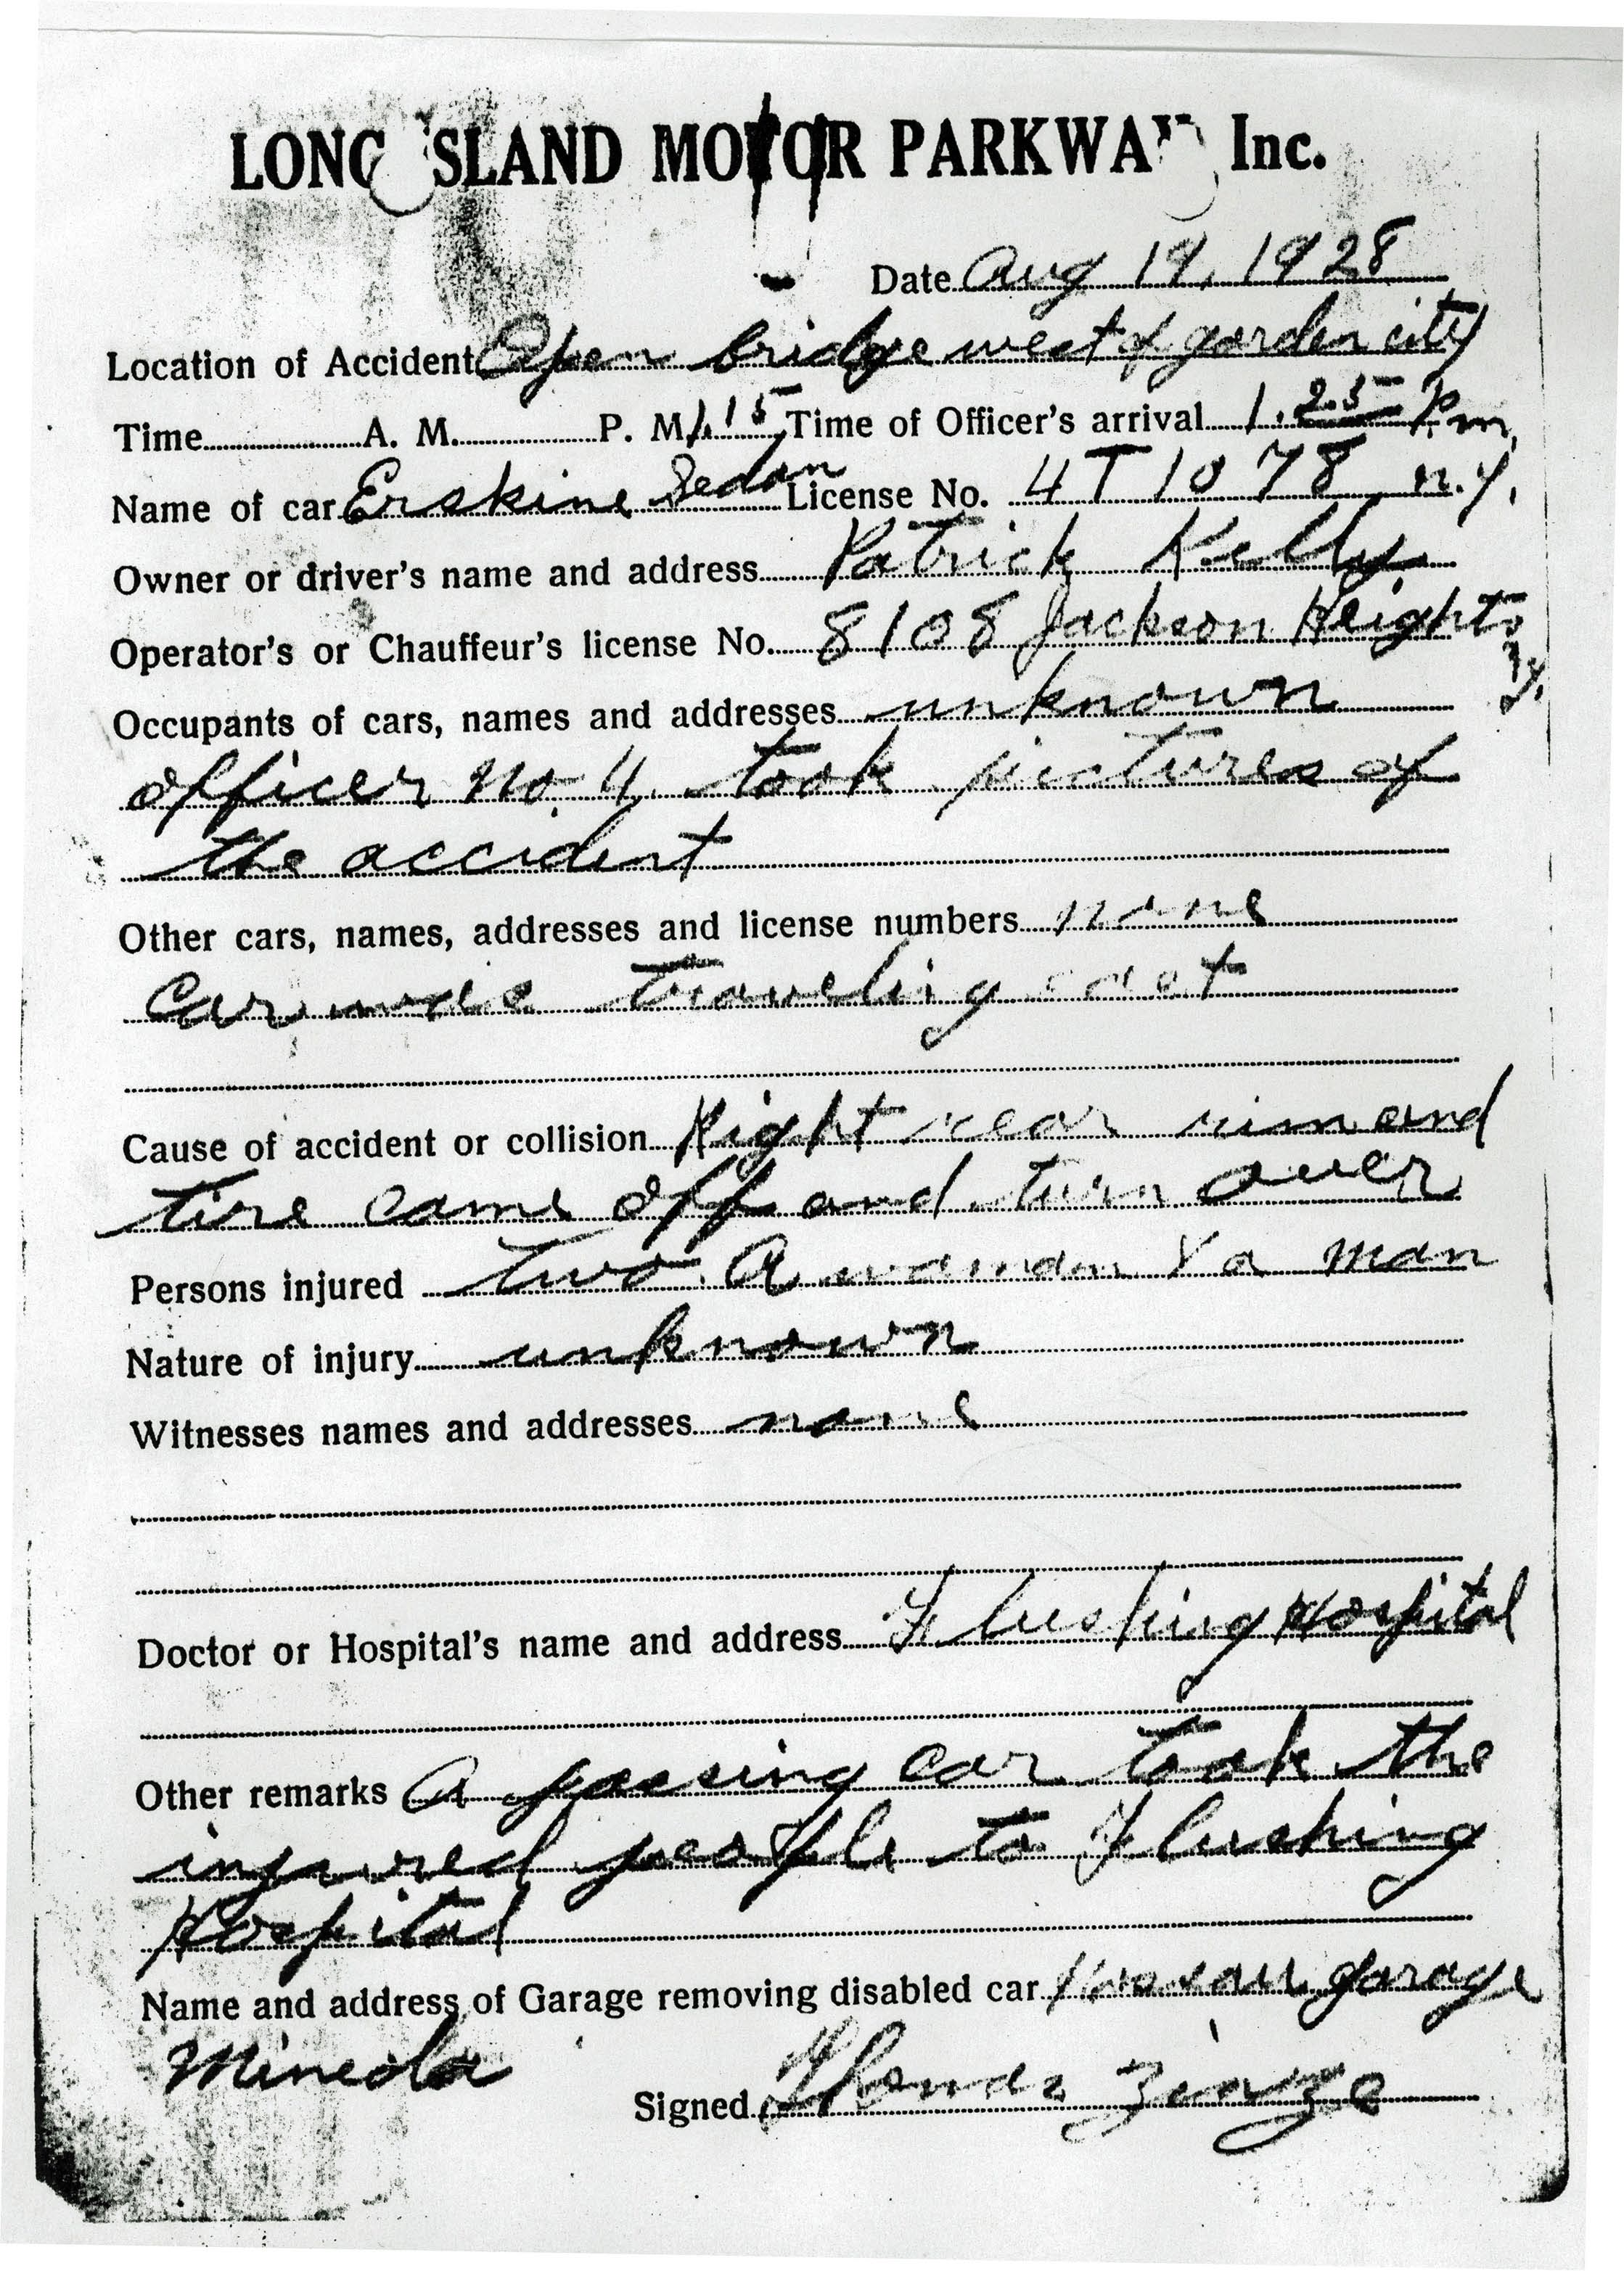 LONG ISLAND MOTOR PARKWAY Inc.
Date Aug 19, 1928
Location of Accident Open bridge west of garden city
Time A. M. P. M. 1.15 Time of Officer's arrival 1.25 P.m.
Name of car Erskine Sedan License No. 4T 10 78 n.y.
Owner or driver's name and address Patrick Kelly
Operator's or Chauffeur's license No. 8108 Jackson Heights
n.y.
Occupants of cars, names and addresses unknown
officer No. 4 took pictures of
the accident
Other cars, names, addresses and license numbers none
Car was traveling east
Cause of accident or collision Right rear rim and
tire came off and turn over
Persons injured two A woman & a man
Nature of injury unknown
Witnesses names and addresses none
Doctor or Hospital's name and address Flushing Hospital
Other remarks A passing car took the
injured people to Flushing
Hospital
Name and address of Garage removing disabled car garage
Mineola
Signed Thomas